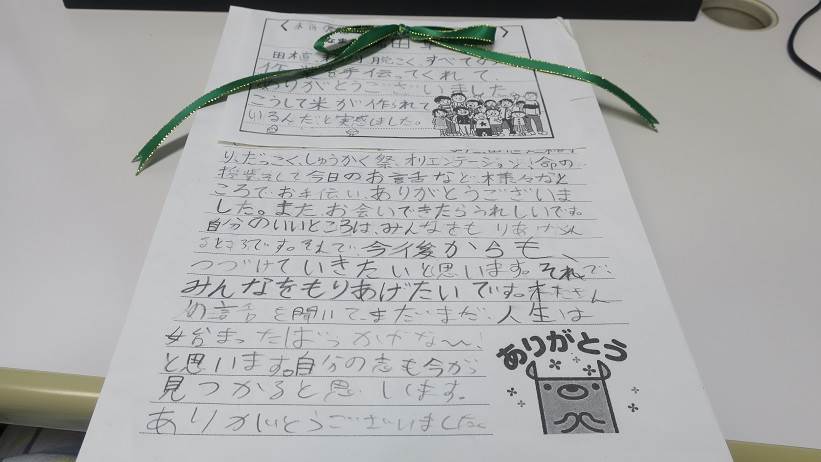 作業を手伝ってくれて、
ありがとうございました
こうして米が作られて
いるんだと実感しました。
り、だっこく、しゅうかく祭、オリエンテーション、命の
授業そして今日のお話など、様々なと
ころで、お手伝い、ありがとうございま
した。また、お会いできたらうれしいです。
自分のいいところは、みんなをもりあげられ
るところです。それで、今後からも、
つづけていきたいと思います。それで、
みんなをもりあげたいです。
のお話を聞いて、まだまだ、人生は
始まったばっかかな〜!
と思います。自分の志も今から
見つかると思います。
ありがとうございました。
ありがとう